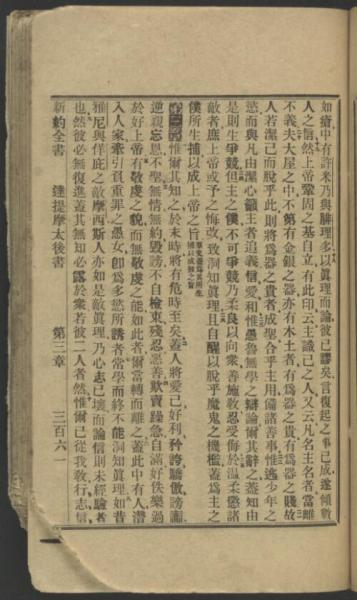 如瘡中有許米乃與腓理多以眞理而論彼已謬矣言復起之事已成遂傾數
人之信然上帝鞏固之基自立有此印云主識己之人又云凡名主名者當離
不義夫大屋之中不第有金銀之器亦有木土者有爲器之貴有爲器之賤故
人若潔己而脫乎此則將爲器之貴者成聖合乎主用備諸善事惟逃少年之
慾而與凡由潔心籲主者追義信愛和惟愚魯無學之辯論爾其辭之蓋知由
是則生爭競但主之僕不可爭競乃柔良以向衆善施敎忍受侮於温柔懲諸
敵者庶上帝或予之悔改致洞知眞理且自醒以脫乎魔鬼之機檻蓋爲主之
僕所生捕以成上帝之旨
惟爾其知之於末時將有危時至矣蓋人將愛己好利矜誇驕傲謗讟
逆親忘恩不聖無情無約毀謗不自檢束殘忍惡善欺賣躁急自滿好佚樂過
於好上帝有敬虔之貌而無敬虔之能如此者爾當轉而離之蓋此中有人潛
入人家牽引負重罪之愚女卽爲多慾所誘者常學而終不能洞知眞理如昔
雅尼與佯庇之敵摩西斯人亦如是敵眞理乃心志已壞而論信則未經驗者
也然彼必無復進蓋其無知必露於衆若彼二人者然惟爾已從我敎行志信
新約全書 達提摩太後書 第三章 三百六一